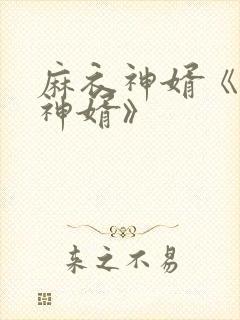 麻衣神婿《
神婿》
来之不易